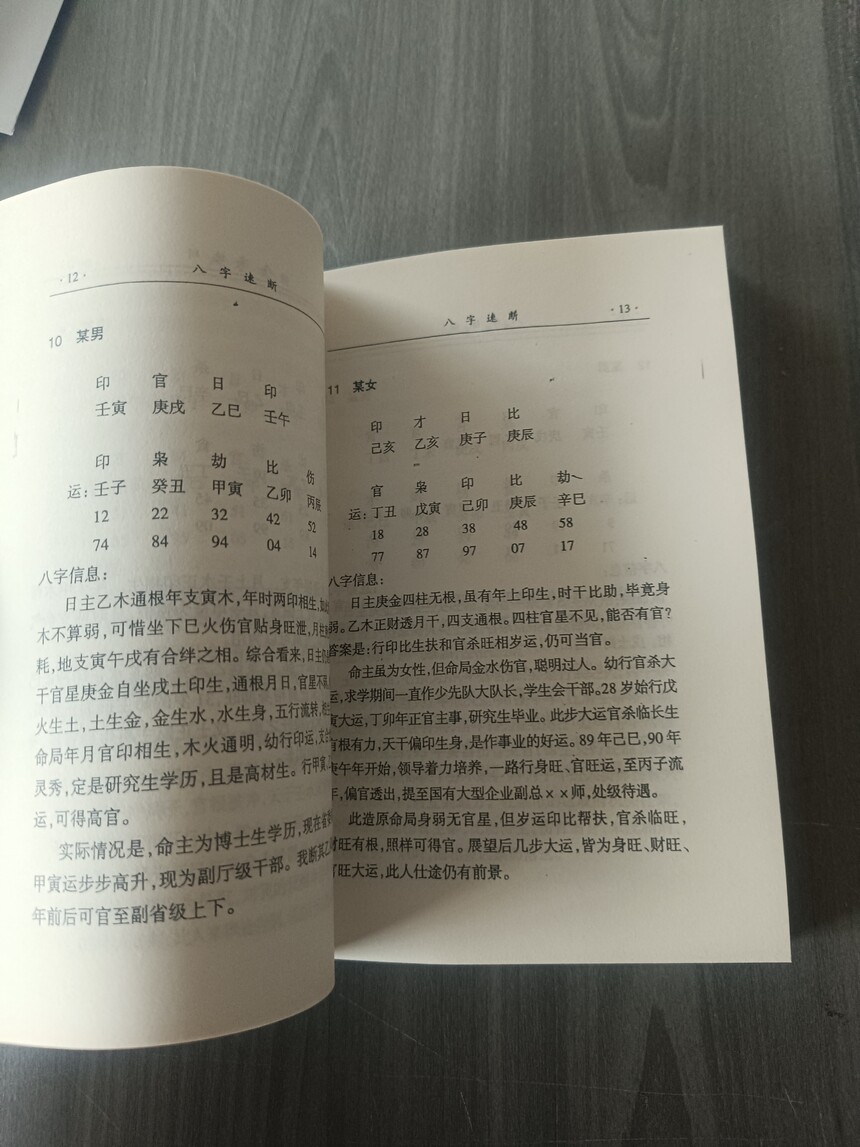 ·12·
八字速断
10 某男
印 官 日 印
壬寅 庚戌 乙巳 壬午
印 枭 劫 比 伤
运:壬子 癸丑 甲寅 乙卯 丙辰
12 22 32 42 52
74 84 94 04 14
八字信息:
日主乙木通根年支寅木,年时两印相生,
木不算弱,可惜坐下巳火伤官贴身旺泄,月
耗,地支寅午戌有合绊之相。综合看来,日主
干官星庚金自坐戌土印生,通根月日,官星不
火生土,土生金,金生水,水生身,五行流转,
命局年月官印相生,木火通明,幼行印运,文
灵秀,定是研究生学历,且是高材生。行甲寅
运,可得高官。
实际情况是,命主为博士生学历,现在省
甲寅运步步高升,现为副厅级干部。我断其乙
年前后可官至副省级上下。
八字速断
·13·
11 某女
印 才 日 比
己亥 乙亥 庚子 庚辰
官 枭 印 比 劫
运:丁丑 戊寅 己卯 庚辰 辛巳
18 28 38 48 58
77 87 97 07 17
八字信息:
日主庚金四柱无根,虽有年上印生,时干比助,毕竟身
弱。乙木正财透月干,四支通根。四柱官星不见,能否有官?
答案是:行印比生扶和官杀旺相岁运,仍可当官。
命主虽为女性,但命局金水伤官,聪明过人。幼行官杀大
运,求学期间一直作少先队大队长,学生会干部。28岁始行戊
寅大运,丁卯年正官主事,研究生毕业。此步大运官杀临长生
有根有力,天干偏印生身,是作事业的好运。89年己巳,90年
庚午年开始,领导着力培养,一路行身旺、官旺运,至丙子流
年,偏官透出,提至国有大型企业副总××师,处级待遇。
此造原命局身弱无官星,但岁运印比帮扶,官杀临旺,
财旺有根,照样可得官。展望后几步大运,皆为身旺、财旺、
官旺大运,此人仕途仍有前景。